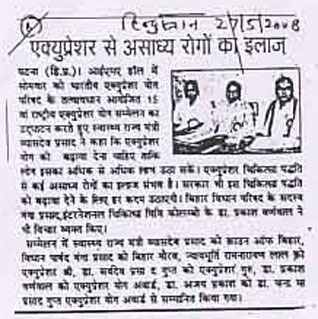 हिन्दुस्तान 2/5/2008
एक्युप्रेशर से असाध्य रोगों का इलाज
पटना (हि.प्र.)। आईएमए हॉल में
सोमवार को भारतीय एक्युप्रेशर योग
परिषद के तत्वावधान आयोजित 15
वां राष्ट्रीय एक्युप्रेशर योग सम्मेलन का
उद्घाटन करते हुए स्वास्थ्य राज्य मंत्री
व्यासदेव प्रसाद ने कहा कि एक्युप्रेशर
योग को बढ़ावा देना चाहिए ताकि
लोग इसका अधिक से अधिक लाभ उठा सकें। एक्युप्रेशर चिकित्सा पद्धति
से कई असाध्य रोगों का इलाज संभव है। सरकार भी इस चिकित्सा पद्धति
को बढ़ावा देने के लिए हर कदम उठाएगी। बिहार विधान परिषद के सदस्य
गंगा प्रसाद, इंटरनेशनल चिकित्सा विवि कोलम्बो के डा. प्रकाश बर्णवाल ने
भी विचार व्यक्त किए।
सम्मेलन में स्वास्थ्य राज्य मंत्री व्यासदेव प्रसाद को क्राउन ऑफ बिहार,
विधान पार्षद गंगा प्रसाद को बिहार गौरव, न्यायमूर्ति रामनारायण लाल को
एक्युप्रेशर श्री, डा. सर्वदेव प्रसाद गुप्त को एक्युप्रेशर गुरु, डा. प्रकाश
बर्णवाल को एक्युप्रेशर योग अवार्ड, डा. अजय प्रकाश को डा.
प्रसाद गुप्त एक्युप्रेशर योग अवार्ड से सम्मानित किया गया।